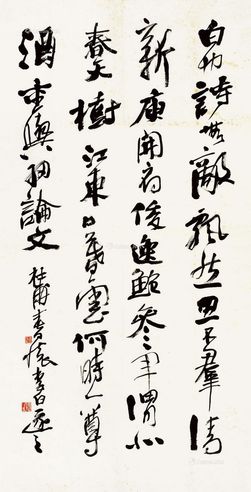 白也詩無敵飄然思不羣清
新庾開府俊逸鮑參軍渭北
春天樹江東日暮雲何時一尊
酒重與細論文
杜甫春憶李白